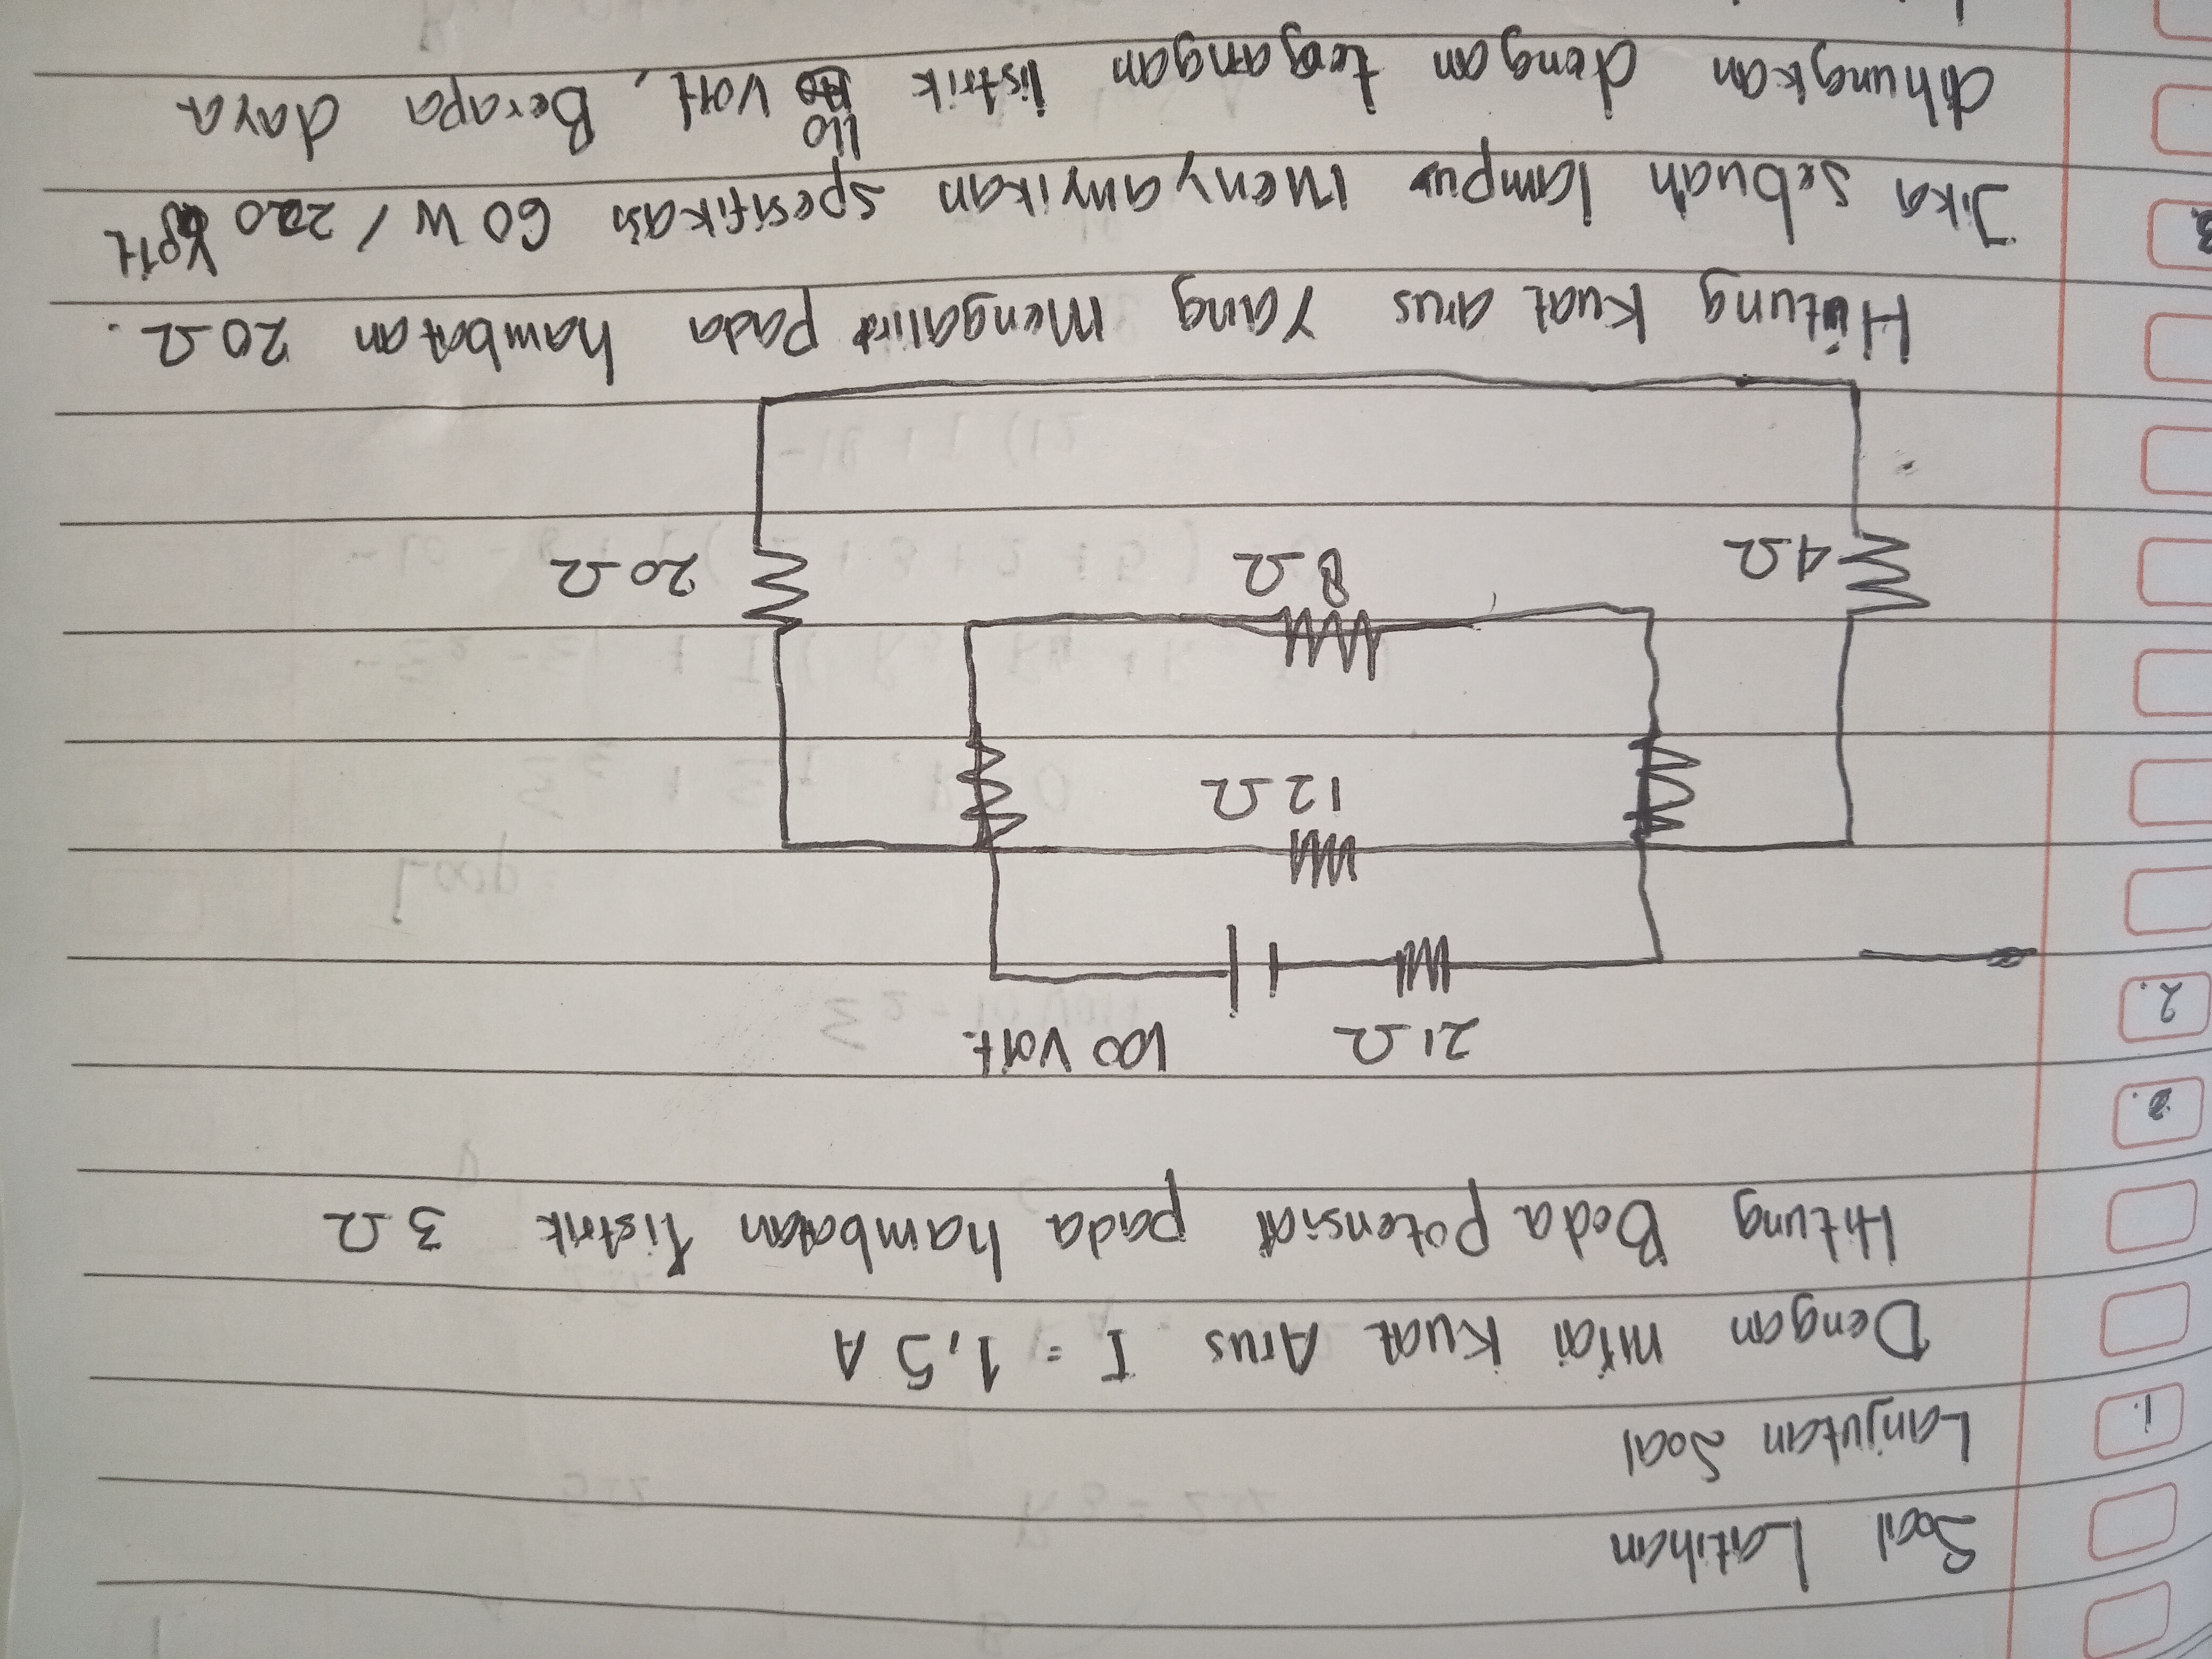 Soal Latihan
1. Lanjutan Soal
Dengan nilai Kuat Arus I = 1,5 A
Hitung Beda Potensial pada hambatan listrik 3 Ω
2.
21 Ω 100 Volt
12 Ω
4Ω 8 Ω 20 Ω
Hitung Kuat arus Yang Mengalir Pada hambatan 20 Ω.
3. Jika Sebuah lampu Menyanyikan Spesifikasi 60 W / 220 Volt
dihungkan dengan tegangan listrik 110 Volt, Berapa daya